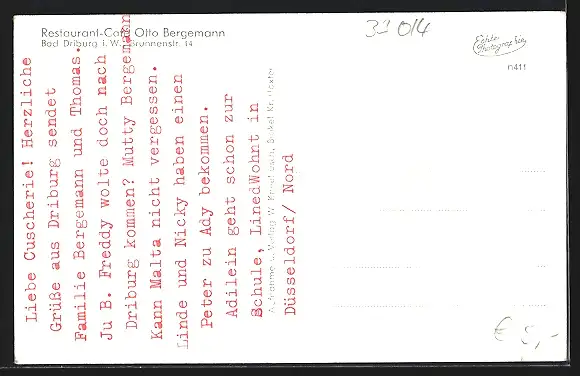 Restaurant-Café Otto Bergemann
Bad Driburg i. W., Brunnenstr. 14
32 014
Echte
Photographie
n411
Liebe Cuscherie! Herzliche
Grüße aus Driburg sendet
Familie Bergemann und Thomas.
Ju B. Freddy wolte doch nach
Driburg kommen? Mutty Bergemann
Kann Malta nicht vergessen.
Linde und Nicky haben einen
Peter zu Ady bekommen.
Adilein geht schon zur
Schule, LinedWohnt in
Düsseldorf/ Nord
Aufnahme u. Verlag W.
€ 5,-